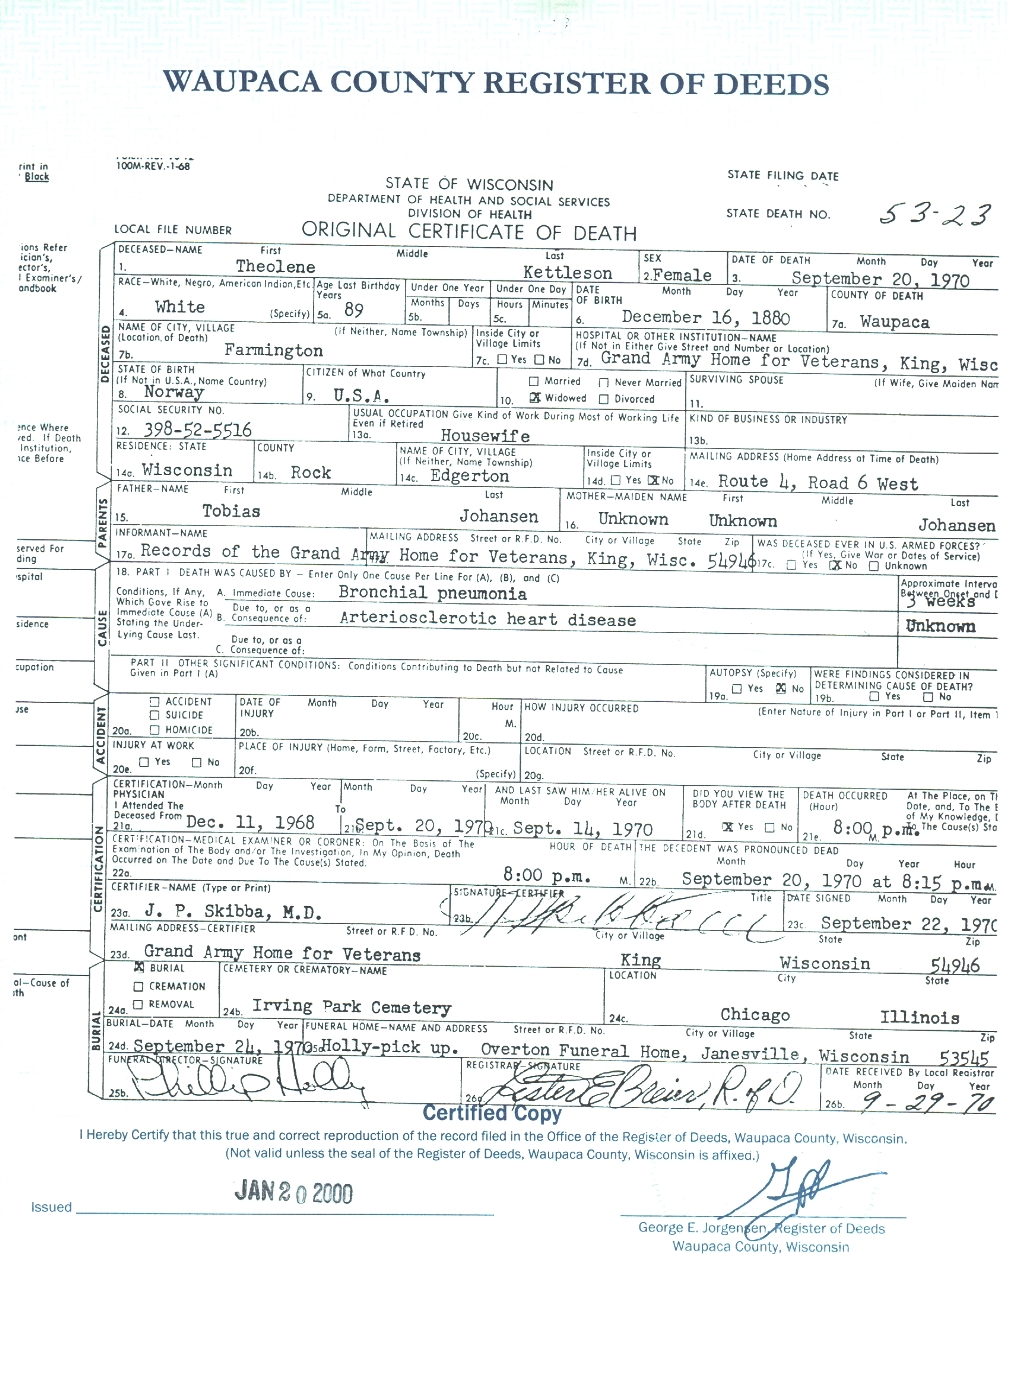 WAUPACA COUNTY REGISTER OF DEEDS
rint in
Black
100M-REV.-1-68
STATE OF WISCONSIN
DEPARTMENT OF HEALTH AND SOCIAL SERVICES
DIVISION OF HEALTH
ORIGINAL CERTIFICATE OF DEATH
STATE FILING DATE
STATE DEATH NO. 53-23
LOCAL FILE NUMBER
ions Refer
ician's,
ector's,
l Examiner's/
andbook
DECEASED
DECEASED—NAME First Middle Last SEX DATE OF DEATH Month Day Year
1. Theolene Kettleson 2. Female 3. September 20, 1970
RACE—White, Negro, American Indian, Etc. Age Last Birthday Under One Year Under One Day DATE OF BIRTH Month Day Year COUNTY OF DEATH
Years Months Days Hours Minutes
4. White (Specify) 5a. 89 5b. 5c. 6. December 16, 1880 7a. Waupaca
NAME OF CITY, VILLAGE (if Neither, Name Township) Inside City or Village Limits HOSPITAL OR OTHER INSTITUTION—NAME
(Location of Death) (If Not in Either Give Street and Number or Location)
7b. Farmington 7c. Yes No 7d. Grand Army Home for Veterans, King, Wisc
STATE OF BIRTH CITIZEN of What Country Married Never Married SURVIVING SPOUSE (If Wife, Give Maiden Nam
(If Not in U.S.A., Name Country)
8. Norway 9. U.S.A. 10. X Widowed Divorced 11.
SOCIAL SECURITY NO. USUAL OCCUPATION Give Kind of Work During Most of Working Life Even if Retired KIND OF BUSINESS OR INDUSTRY
12. 398-52-5516 13a. Housewife 13b.
ence Where
ved. If Death
Institution,
ice Before
RESIDENCE: STATE COUNTY NAME OF CITY, VILLAGE (If Neither, Name Township) Inside City or Village Limits MAILING ADDRESS (Home Address at Time of Death)
14a. Wisconsin 14b. Rock 14c. Edgerton 14d. Yes X No 14e. Route 4, Road 6 West
PARENTS
FATHER—NAME First Middle Last MOTHER—MAIDEN NAME First Middle Last
15. Tobias Johansen 16. Unknown Unknown Johansen
INFORMANT—NAME MAILING ADDRESS Street or R.F.D. No. City or Village State Zip WAS DECEASED EVER IN U.S. ARMED FORCES?
(If Yes, Give War or Dates of Service)
17a. Records of the Grand Army Home for Veterans, King, Wisc. 54946 17c. Yes X No Unknown
served For
ding
spital
sidence
cupation
CAUSE
18. PART I DEATH WAS CAUSED BY — Enter Only One Cause Per Line For (A), (B), and (C) Approximate Interva
Between Onset and D
Conditions, If Any, Which Gave Rise to Immediate Cause (A) Stating the Under- Lying Cause Last.
A. Immediate Cause: Bronchial pneumonia 3 weeks
B. Due to, or as a Consequence of: Arteriosclerotic heart disease Unknown
C. Due to, or as a Consequence of:
PART II OTHER SIGNIFICANT CONDITIONS: Conditions Contributing to Death but not Related to Cause
Given in Part I (A)
AUTOPSY (Specify) WERE FINDINGS CONSIDERED IN
DETERMINING CAUSE OF DEATH?
19a. Yes X No 19b. Yes No
ACCIDENT
20a. ACCIDENT SUICIDE HOMICIDE
DATE OF INJURY Month Day Year Hour HOW INJURY OCCURRED (Enter Nature of Injury in Part I or Part II, Item 1
20b. 20c. M. 20d.
INJURY AT WORK PLACE OF INJURY (Home, Farm, Street, Factory, Etc.) LOCATION Street or R.F.D. No. City or Village State Zip
20e. Yes No 20f. (Specify) 20g.
CERTIFICATION
CERTIFICATION—Month Day Year Month Day Year AND LAST SAW HIM/HER ALIVE ON DID YOU VIEW THE DEATH OCCURRED At The Place, on Th
PHYSICIAN To Month Day Year BODY AFTER DEATH (Hour) Date, and, To The B
I Attended The of My Knowledge, D
Deceased From The Cause(s) Sta
21a. Dec. 11, 1968 21b. Sept. 20, 1970 21c. Sept. 14, 1970 21d. X Yes No 21e. 8:00 p.m.
CERTIFICATION—MEDICAL EXAMINER OR CORONER: On The Basis of The HOUR OF DEATH THE DECEDENT WAS PRONOUNCED DEAD
Examination of The Body and/or The Investigation, In My Opinion, Death Month Day Year Hour
Occurred on The Date and Due To The Cause(s) Stated.
22a. 8:00 p.m. M. 22b. September 20, 1970 at 8:15 p.m.
CERTIFIER—NAME (Type or Print) SIGNATURE—CERTIFIER Title DATE SIGNED Month Day Year
23a. J. P. Skibba, M.D. 23b. 23c. September 22, 1970
MAILING ADDRESS—CERTIFIER Street or R.F.D. No. City or Village State Zip
23d. Grand Army Home for Veterans King Wisconsin 54946
al—Cause of
BURIAL
X BURIAL CEMETERY OR CREMATORY—NAME LOCATION City State
CREMATION
24a. REMOVAL 24b. Irving Park Cemetery 24c. Chicago Illinois
BURIAL-DATE Month Day Year FUNERAL HOME—NAME AND ADDRESS Street or R.F.D. No. City or Village State Zip
24d. September 24, 1970 Holly-pick up. Overton Funeral Home, Janesville, Wisconsin 53545
FUNERAL DIRECTOR—SIGNATURE REGISTRAR—SIGNATURE DATE RECEIVED By Local Registrar
Month Day Year
25b. Phillip Holly 26a. Lester E Breier, R. of D. 26b. 9-29-70
Certified Copy
I Hereby Certify that this true and correct reproduction of the record filed in the Office of the Register of Deeds, Waupaca County, Wisconsin.
(Not valid unless the seal of the Register of Deeds, Waupaca County, Wisconsin is affixed.)
Issued JAN 20 2000
George E. Jorgensen, Register of Deeds
Waupaca County, Wisconsin